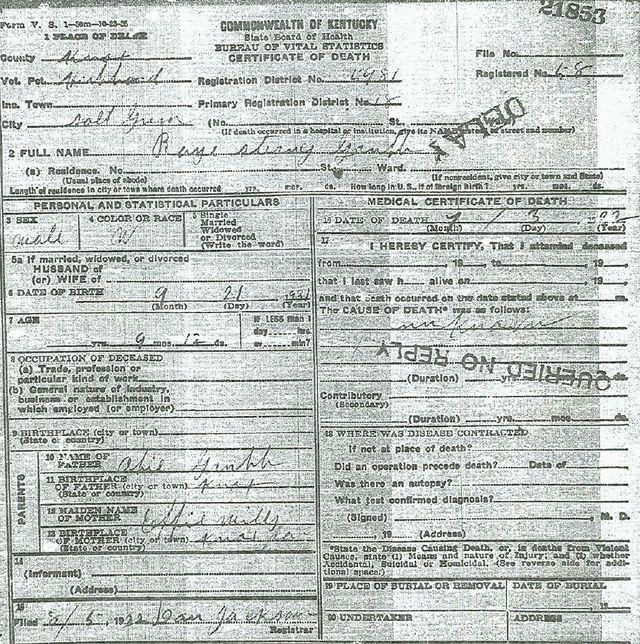 Form V. S. 1—50m—10-23-25
21853
1 PLACE OF DEATH
COMMONWEALTH OF KENTUCKY
State Board of Health
BUREAU OF VITAL STATISTICS
CERTIFICATE OF DEATH
County Knox
File No.
Vot. Pct.
Registration District No.
Registered No. 68
Inc. Town
Primary Registration District No.
City Salt Gum (No. St.
(If death occurred in a hospital or institution, give its NAME instead of street and number)
DELAY
2 FULL NAME
(a) Residence. No. St., Ward.
(Usual place of abode) (If nonresident, give city or town and State)
Length of residence in city or town where death occurred yrs. mos. ds. How long in U. S., if of foreign birth? yrs. mos. ds.
PERSONAL AND STATISTICAL PARTICULARS
3 SEX
male
4 COLOR OR RACE
W
5 Single
Married
Widowed
or Divorced
(Write the word)
5a If married, widowed, or divorced
HUSBAND of
(or) WIFE of
6 DATE OF BIRTH 9 21
(Month) (Day) (Year)
7 AGE
yrs. 9 mos. 12 ds.
If LESS than 1
day hrs.
or min?
8 OCCUPATION OF DECEASED
(a) Trade, profession or
particular kind of work
(b) General nature of industry,
business or establishment in
which employed (or employer)
9 BIRTHPLACE (city or town)
(State or country)
PARENTS
10 NAME OF
FATHER
11 BIRTHPLACE
OF FATHER (city or town) Knox
(State or country)
12 MAIDEN NAME
OF MOTHER Effie Mills
13 BIRTHPLACE
OF MOTHER (city or town)
(State or country)
14
(Informant)
(Address)
15
Filed
Jackson
Registrar
MEDICAL CERTIFICATE OF DEATH
16 DATE OF DEATH 3
(Month) (Day) (Year)
17
I HEREBY CERTIFY, That I attended deceased
from , 19 to , 19
that I last saw h alive on , 19
and that death occurred on the date stated above at m.
The CAUSE OF DEATH* was as follows:
unknown
QUERIED NO REPLY
(Duration) yrs. mos. ds.
Contributory
(Secondary)
(Duration) yrs. mos. ds.
18 WHERE WAS DISEASE CONTRACTED
If not at place of death?
Did an operation precede death? Date of
Was there an autopsy?
What test confirmed diagnosis?
(Signed) M. D.
, 19 (Address)
*State the Disease Causing Death, or, in deaths from Violent
Causes, state (1) Means and nature of Injury; and (2) whether
Accidental, Suicidal or Homicidal. (See reverse side for addi-
tional space.)
19 PLACE OF BURIAL OR REMOVAL
DATE OF BURIAL
19
20 UNDERTAKER
ADDRESS